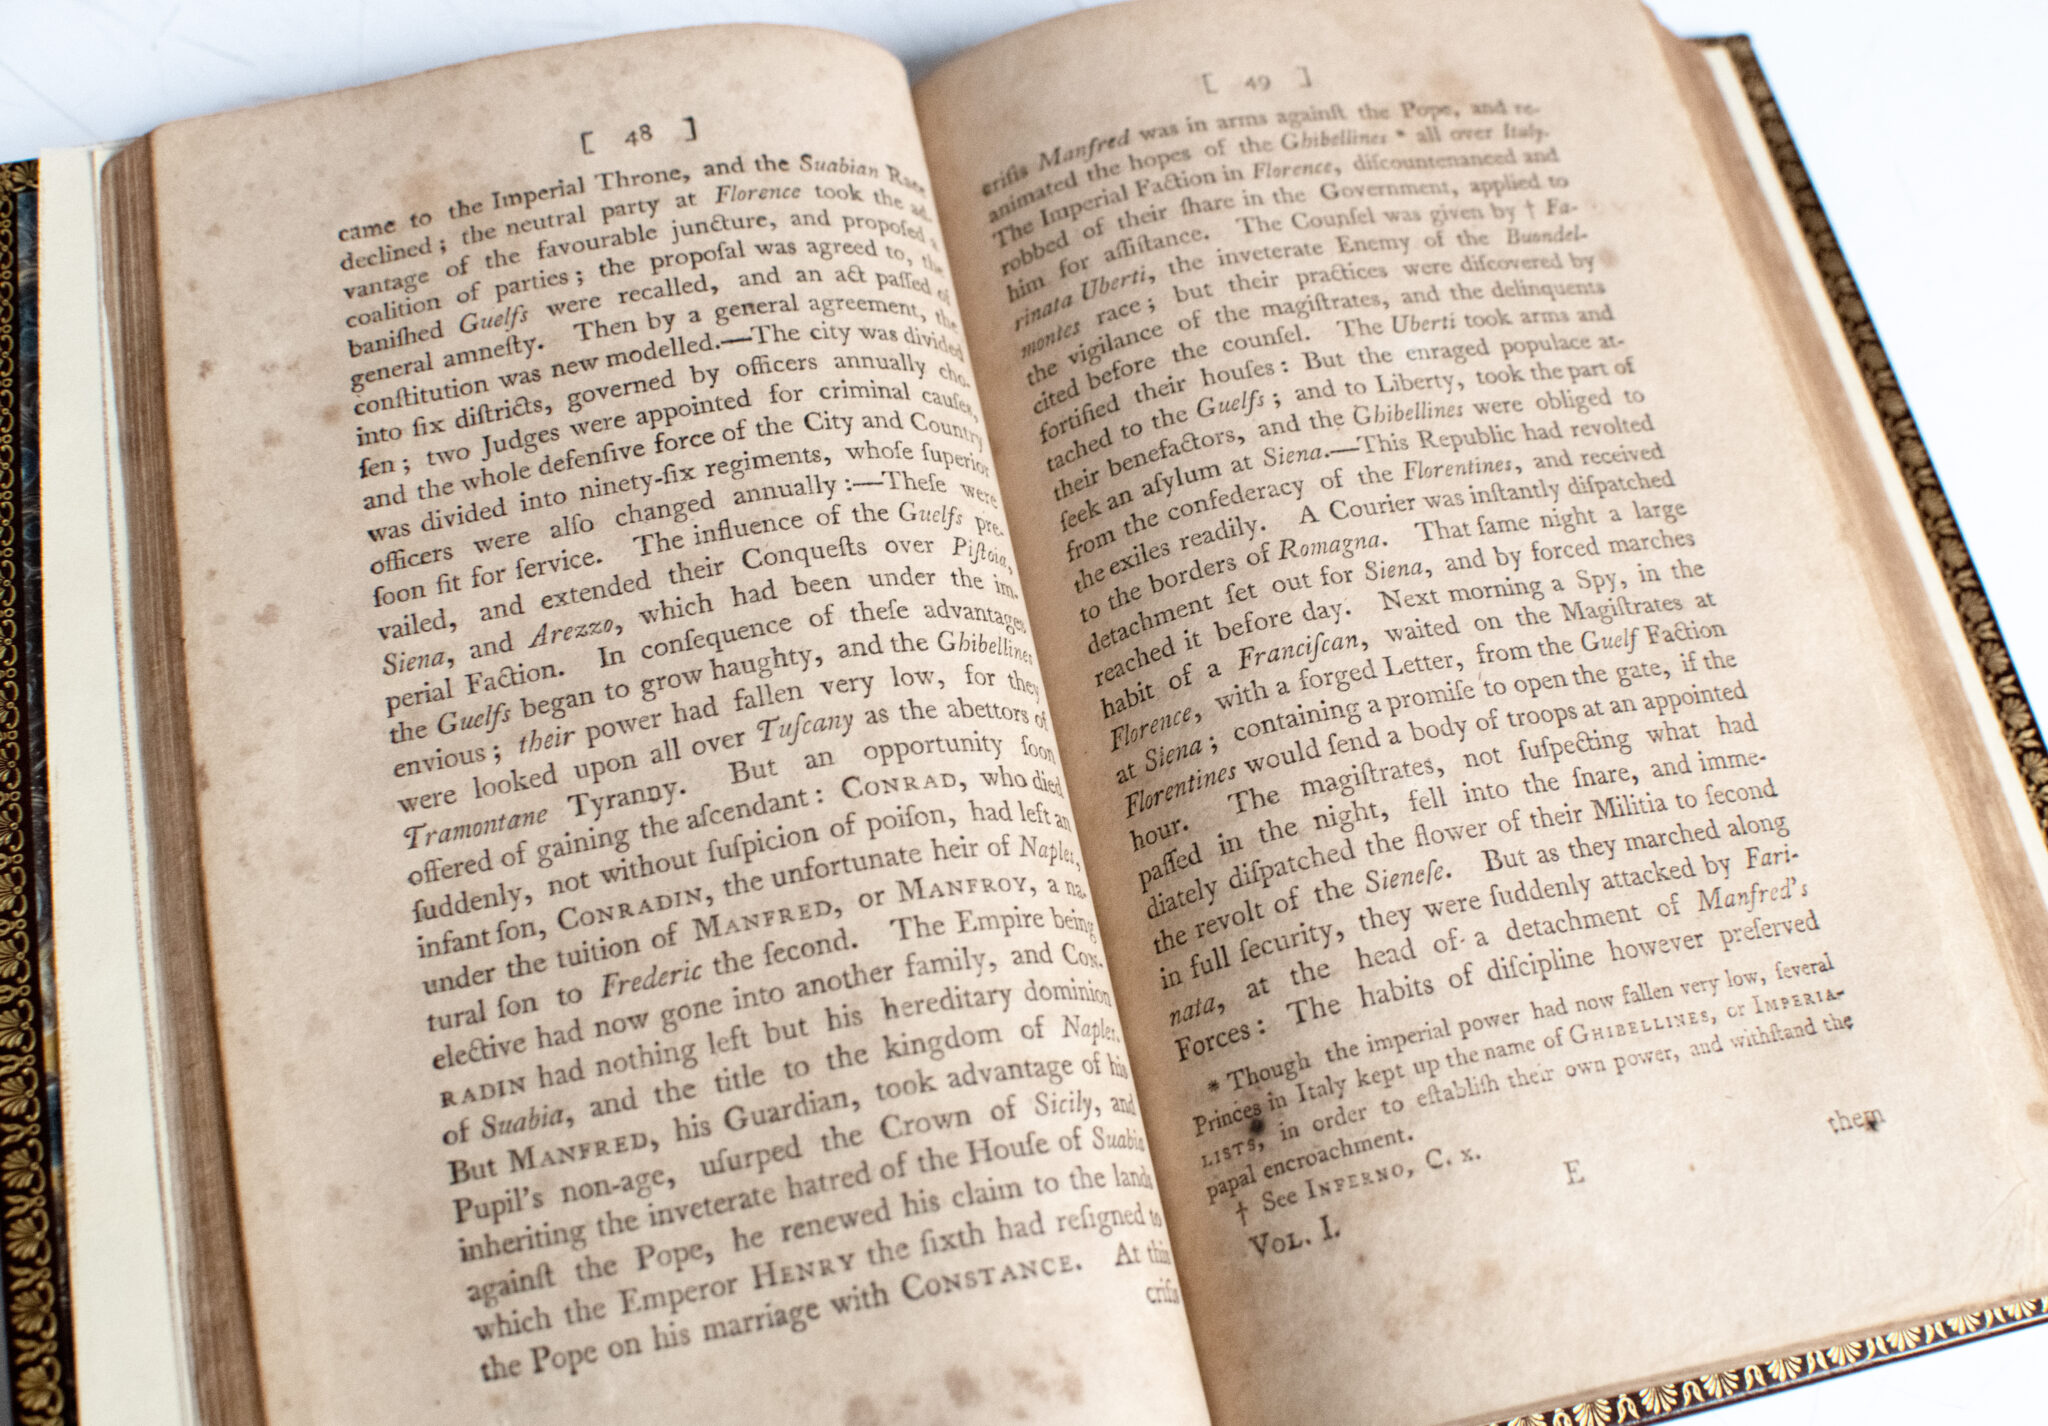 [ 48 ]
came to the Imperial Throne, and the Suabian Race
declined; the neutral party at Florence took the ad-
vantage of the favourable juncture, and propoſed a
coalition of parties; the propoſal was agreed to, the
baniſhed Guelfs were recalled, and an act paſſed of
general amneſty. Then by a general agreement, the
conſtitution was new modelled.—The city was divided
into ſix diſtricts, governed by officers annually cho-
ſen; two Judges were appointed for criminal cauſes,
and the whole defenſive force of the City and Country
was divided into ninety-ſix regiments, whoſe ſuperior
officers were alſo changed annually:—Theſe were
ſoon fit for ſervice. The influence of the Guelfs pre-
vailed, and extended their Conqueſts over Piſtoia,
Siena, and Arezzo, which had been under the im-
perial Faction. In conſequence of theſe advantages
the Guelfs began to grow haughty, and the Ghibellines
envious; their power had fallen very low, for they
were looked upon all over Tuſcany as the abettors of
Tramontane Tyranny. But an opportunity ſoon
offered of gaining the aſcendant: CONRAD, who died
ſuddenly, not without ſuſpicion of poiſon, had left an
infant ſon, CONRADIN, the unfortunate heir of Naples,
under the tuition of MANFRED, or MANFROY, a na-
tural ſon to Frederic the ſecond. The Empire being
elective had now gone into another family, and CON-
RADIN had nothing left but his hereditary dominion
of Suabia, and the title to the kingdom of Naples.
But MANFRED, his Guardian, took advantage of his
Pupil's non-age, uſurped the Crown of Sicily, and
inheriting the inveterate hatred of the Houſe of Suabia
againſt the Pope, he renewed his claim to the lands
which the Emperor HENRY the ſixth had reſigned to
the Pope on his marriage with CONSTANCE. At this
criſis
[ 49 ]
criſis Manfred was in arms againſt the Pope, and re-
animated the hopes of the Ghibellines * all over Italy.
The Imperial Faction in Florence, diſcountenanced and
robbed of their ſhare in the Government, applied to
him for aſſiſtance. The Counſel was given by † Fa-
rinata Uberti, the inveterate Enemy of the Buondel-
montes race; but their practices were diſcovered by
the vigilance of the magiſtrates, and the delinquents
cited before the counſel. The Uberti took arms and
fortified their houſes: But the enraged populace at-
tached to the Guelfs; and to Liberty, took the part of
their benefactors, and the Ghibellines were obliged to
ſeek an aſylum at Siena.—This Republic had revolted
from the confederacy of the Florentines, and received
the exiles readily. A Courier was inſtantly diſpatched
to the borders of Romagna. That ſame night a large
detachment ſet out for Siena, and by forced marches
reached it before day. Next morning a Spy, in the
habit of a Franciſcan, waited on the Magiſtrates at
Florence, with a forged Letter, from the Guelf Faction
at Siena; containing a promiſe to open the gate, if the
Florentines would ſend a body of troops at an appointed
hour. The magiſtrates, not ſuſpecting what had
paſſed in the night, fell into the ſnare, and imme-
diately diſpatched the flower of their Militia to ſecond
the revolt of the Sieneſe. But as they marched along
in full ſecurity, they were ſuddenly attacked by Fari-
nata, at the head of a detachment of Manfred's
Forces: The habits of diſcipline however preſerved
* Though the imperial power had now fallen very low, ſeveral
Princes in Italy kept up the name of GHIBELLINES, or IMPERIA-
LISTS, in order to eſtabliſh their own power, and withſtand the
papal encroachment.
† See INFERNO, C. x.
VOL. I. E them